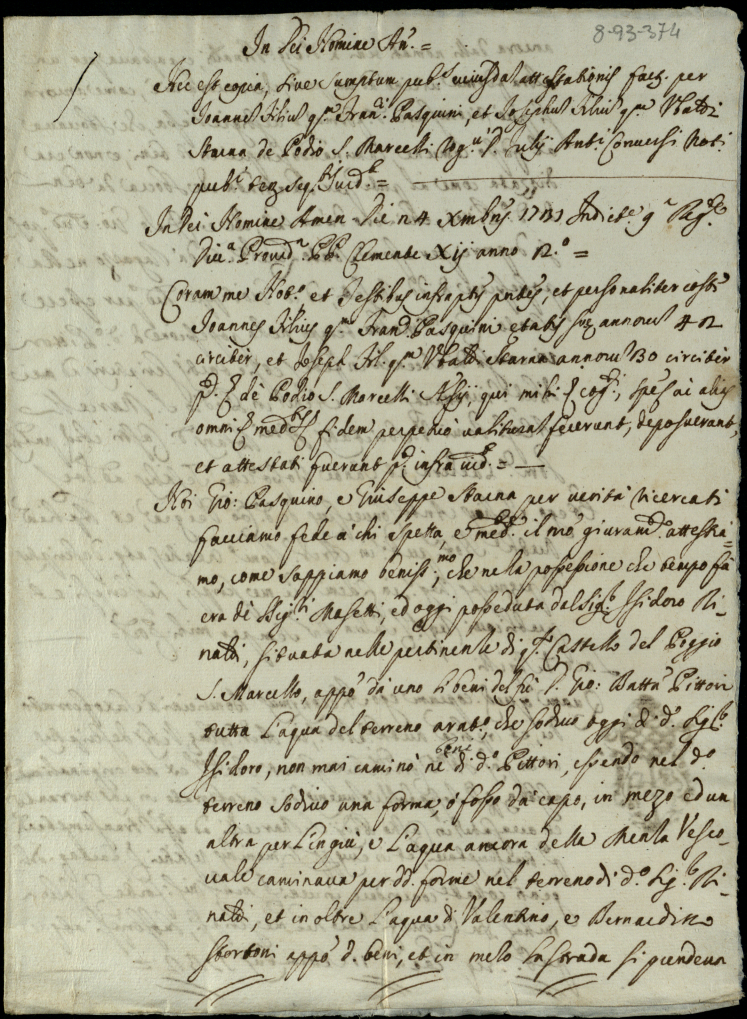 8-93-374
In Dei Nomine An. =
Hec est copia, sive sumptum pub. cuiusd. attestationis fact. per
Joannes filius qm Fran. Pasquini, et Josephus filius qm Ubaldi
Sbarra de Podio S. Marcelli Rog. D. Julij Ant. Conversi Not.
pub.
In Dei Nomine Amen Die 24 Xmbris 1731 Indict. 9 Reg.
Clemente Xij anno 2.o =
Coram me Not. et Testibus infraptis pntes, et personaliter costi
Joannes filius qm Fran. Pasquini etatis sue annorum 42
circiter, et Joseph fil. qm Ubaldi Sbarna annorum 30 circiter
de Podio S. Marcelli qui mihi cog.
omni fidem perpetuo valituram fecerunt, deposuerunt,
et attestati fuerunt infra =
Noi Gio: Pasquino, e Giuseppe Sbarna per verità ricercati
facciamo fede à chi spetta, e med. il nro giuram. attestia=
mo, come sappiamo beniss.mo, che nela possessione che tempo fà
era dè SSig.ri Masetti, ed oggi posseduta dal Sig. Isidoro Ri=
naldi, situata nelle pertinente di q. Castello del Poggio
S. Marcello, appo dà uno li beni del fù D. Gio: Batta Pittori
tutta l'aqua del terreno arato, che sodivo oggi d. d. Sig.
Isidoro, non mai caminò ne beni d. d. Pittori, essendo nel d.o
terreno sodivo una forma, ò fosso dà capo, in mezo ed un
altra per l'ingiù, e l'aqua ancora della Mensa Vesco=
vale caminava per dd. forme nel terreno di d.o Sig. Ri=
naldi, et in oltre l'aqua di Valentino, e Bernardino
Stortoni appo d. beni, et in melo la strada si prendeva